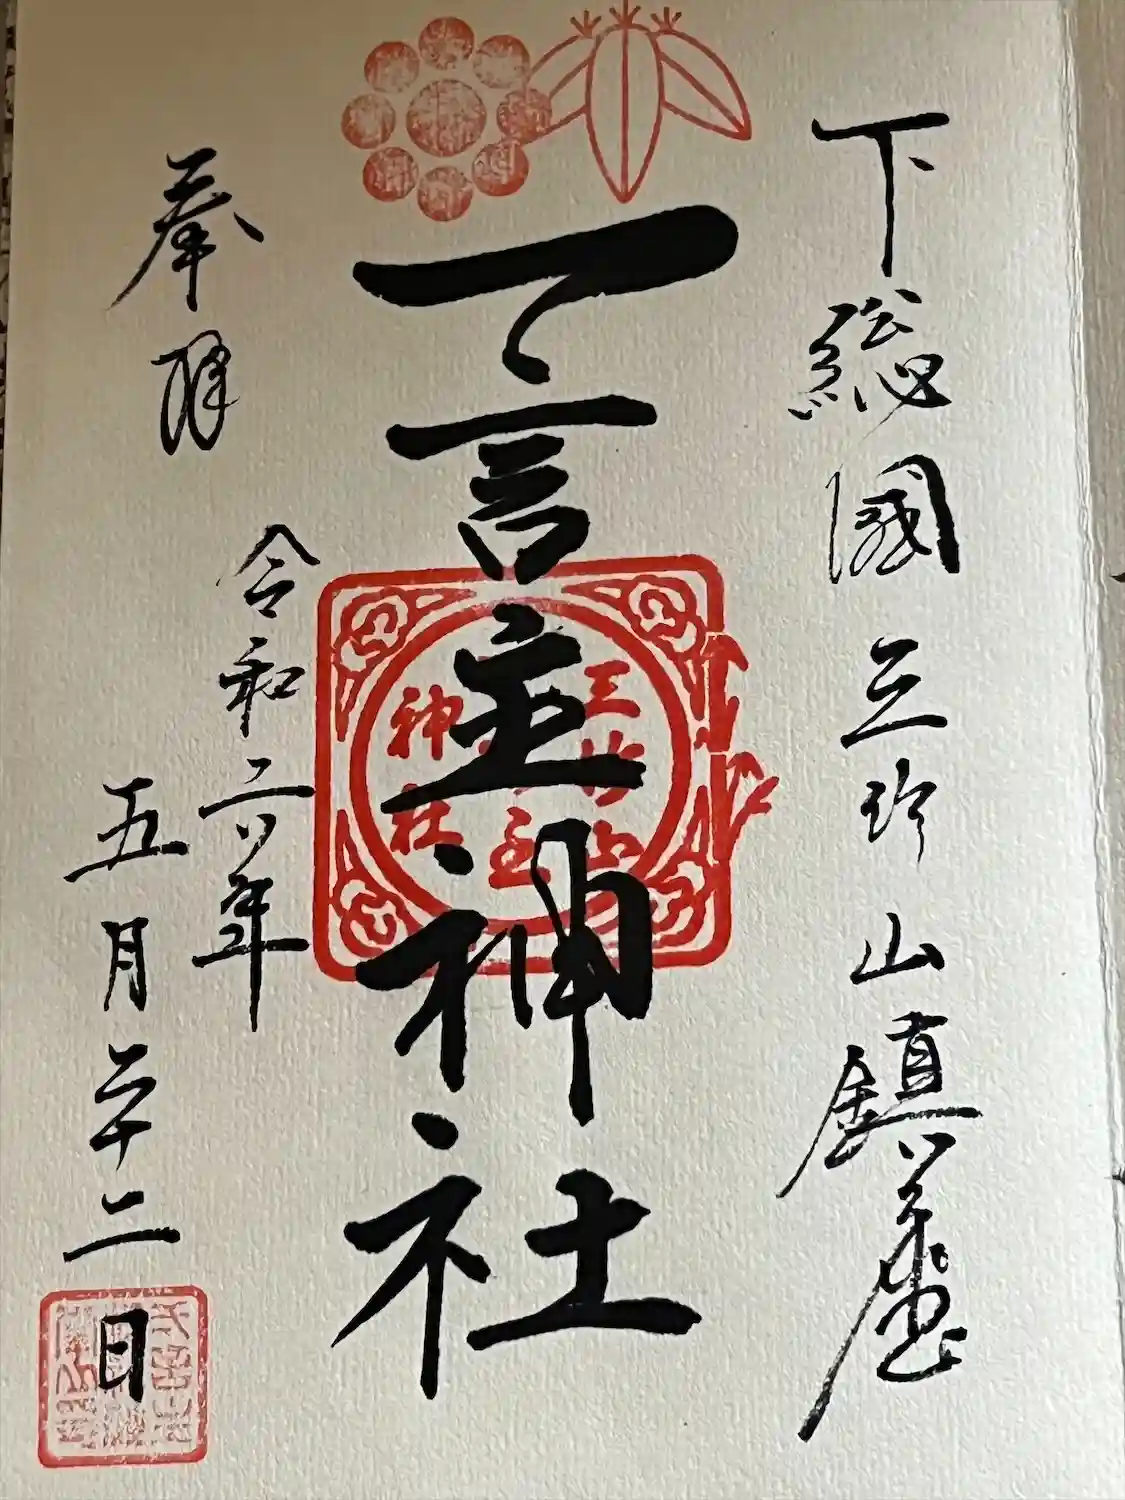 下総國 三竹山 鎮座
一言主神社
三竹山
主
神社
奉拝
令和六年
五月二十二日